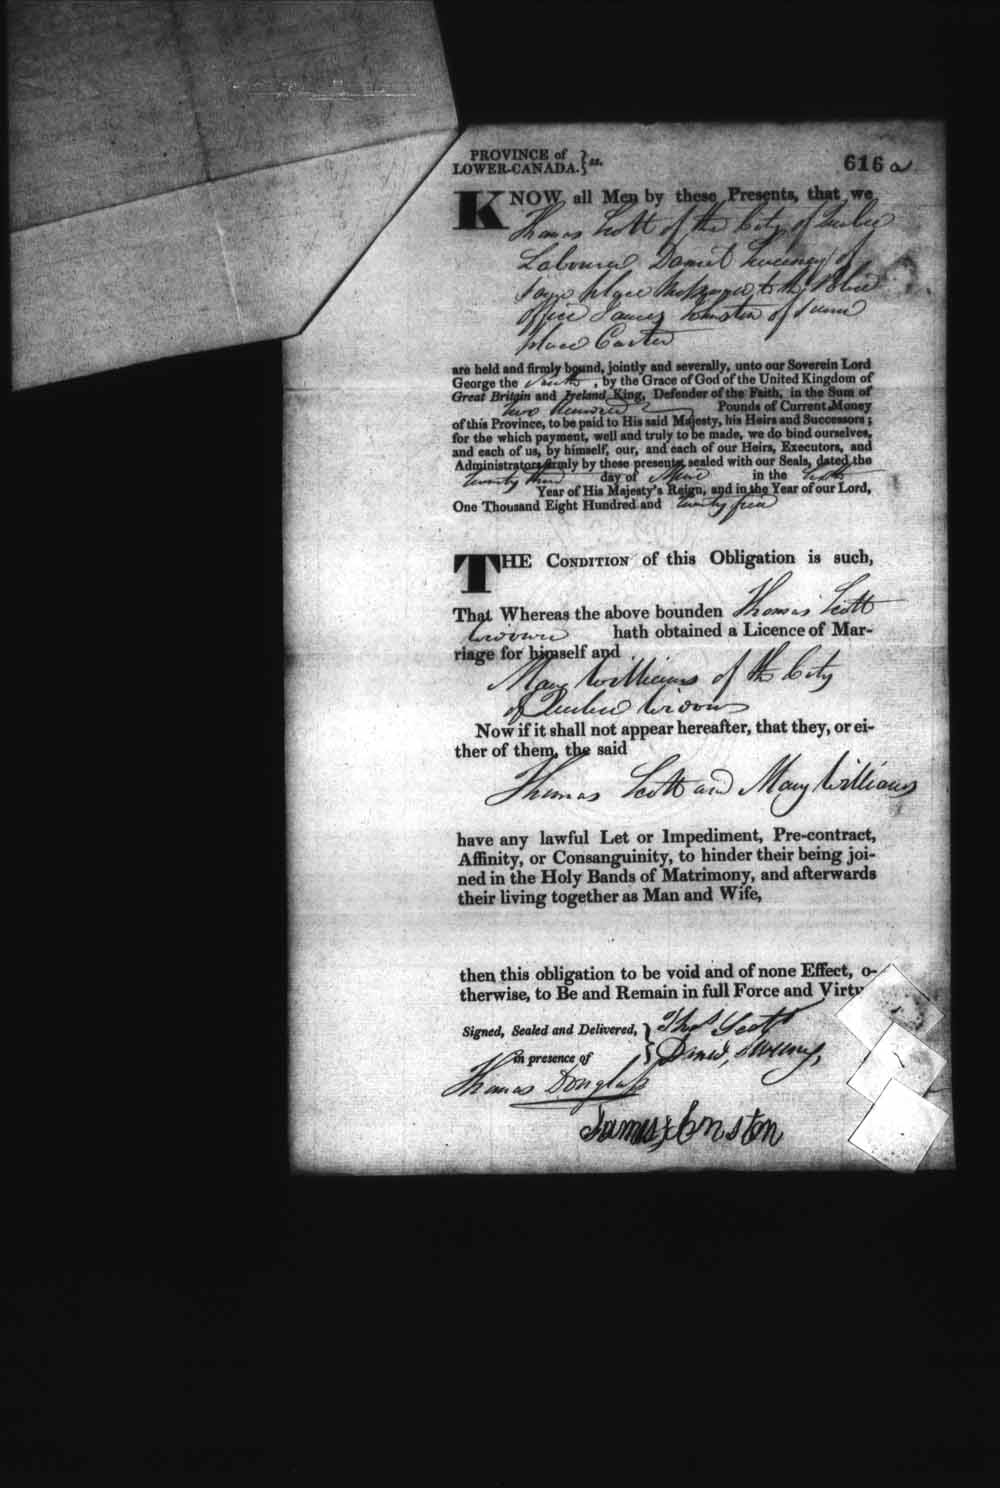 PROVINCE of
LOWER-CANADA. } ss.
616 a
KNOW all Men by these Presents, that we
Thomas Scott of the City of Quebec
Labourer Daniel Sweeney of
same place Messenger to the Police
Office James Johnston of same
place Carter
are held and firmly bound, jointly and severally, unto our Soverein Lord
George the Fourth, by the Grace of God of the United Kingdom of
Great Britain and Ireland King, Defender of the Faith, in the Sum of
Two Hundred Pounds of Current Money
of this Province, to be paid to His said Majesty, his Heirs and Successors ;
for the which payment, well and truly to be made, we do bind ourselves,
and each of us, by himself, our, and each of our Heirs, Executors, and
Administrators firmly by these presents, sealed with our Seals, dated the
twenty third day of in the
Year of His Majesty's Reign, and in the Year of our Lord,
One Thousand Eight Hundred and twenty five
THE CONDITION of this Obligation is such,
That Whereas the above bounden Thomas Scott
hath obtained a Licence of Mar-
riage for himself and
Mary Williams of the City
of Quebec Widow
Now if it shall not appear hereafter, that they, or ei-
ther of them, the said
Thomas Scott and Mary Williams
have any lawful Let or Impediment, Pre-contract,
Affinity, or Consanguinity, to hinder their being joi-
ned in the Holy Bands of Matrimony, and afterwards
their living together as Man and Wife,
then this obligation to be void and of none Effect, o-
therwise, to Be and Remain in full Force and Virtu
Signed, Sealed and Delivered, } Thos Scott
in presence of } Sweeney
Thomas Douglass
James Johnston